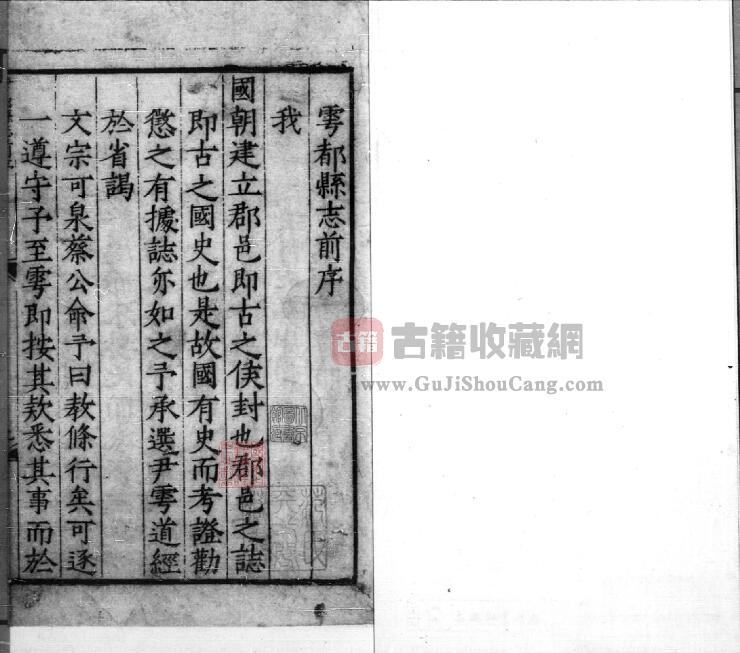 雩都縣志前序
我
國朝建立郡邑即古之侯封也郡邑之誌
即古之國史也是故國有史而考證勸
懲之有據誌亦如之予承選尹雩道經
於省謁
文宗可泉蔡公命予曰教條行矣可逐
一遵守予至雩即按其欵悉其事而於
古籍 古籍收藏網
www.GuJiShouCang.com